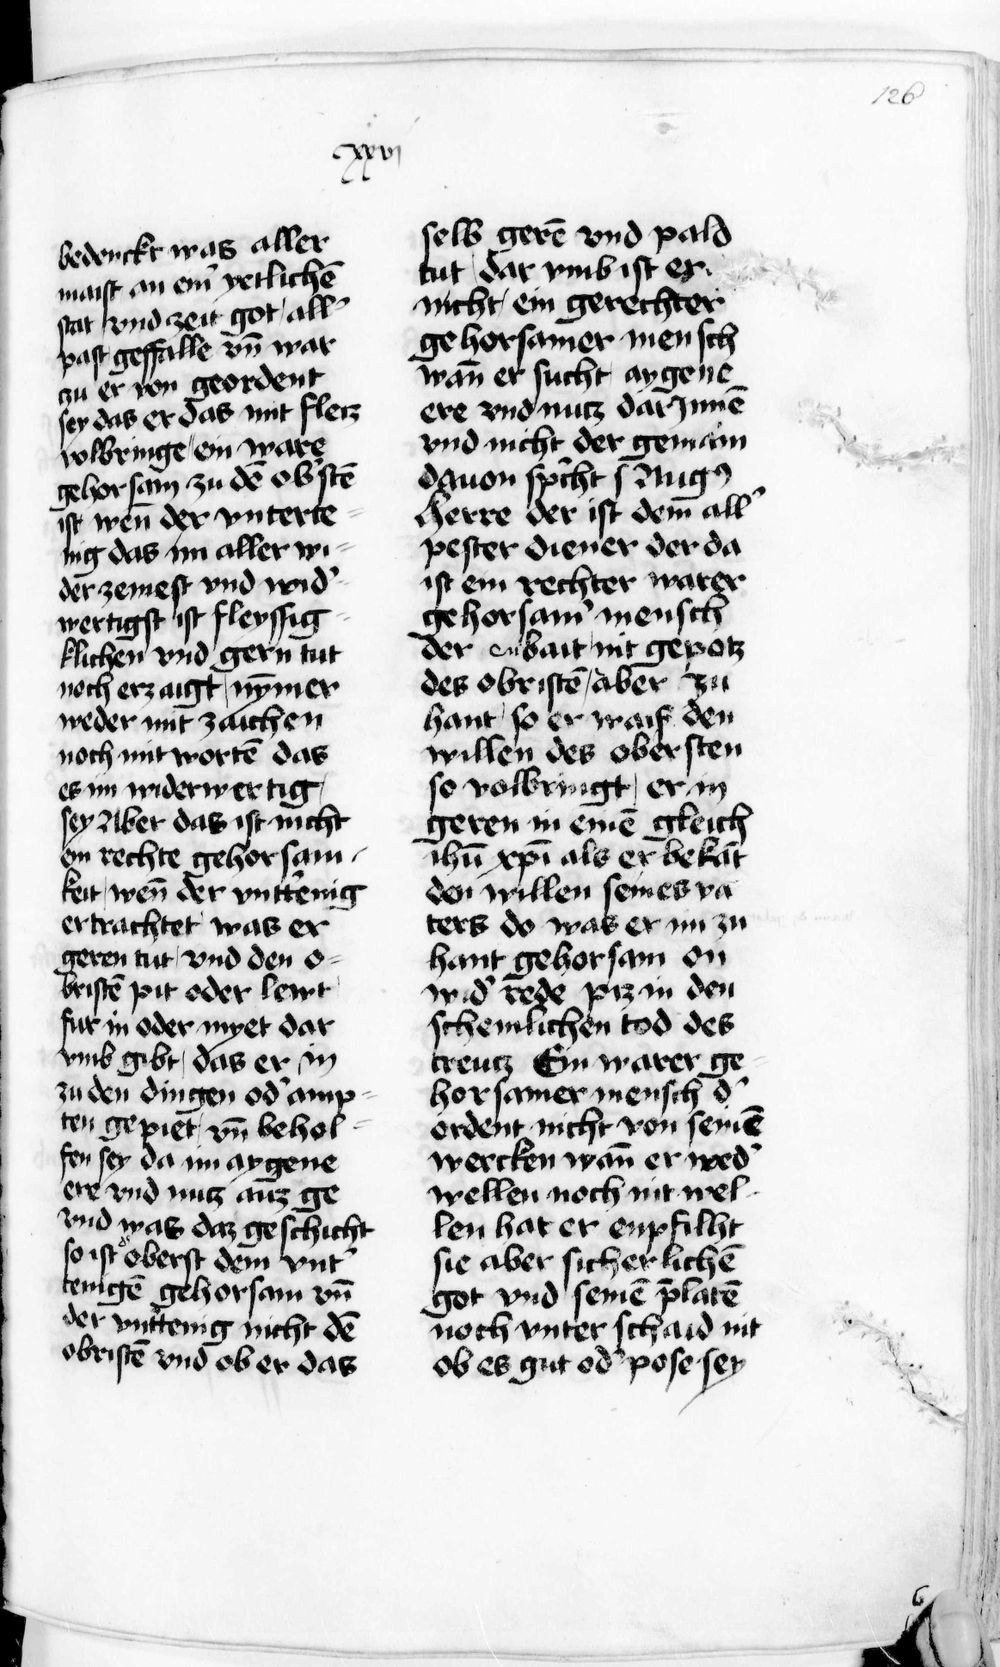 126
cxxvj
bedenckt was aller
maist an em̄ yetlichē
stat vnd zeit got all'
past geffalle vn̄ war
zu er von geordent
sey das er das mit fleiz
volbringe ein ware
gehorsam zu dē ob'stē
ist wen̄ der vnterte=
nig das im aller wi=
der zemest vnd wid'=
wertigst ist fleyssig=
klichen vnd gern tut
noch erzaigt nȳmer
weder mit zaichen
noch mit wortē das
es im widerwertig
sey Aber das ist nicht
ein rechte gehorsam=
keit wen̄ der vntt'enig
ertrachtet was er
geren tut vnd den o=
bristē pit oder lewt
fur in oder myet dar
vmb gibt das er in
zu den dingen od' amp=
ten gepiet vn̄ behol=
fen sey da im aygene
ere vnd nutz auz ge
vnd was daz geschicht
so ist d' oberst dem vnt'
tenigē gehorsam vn̄
der vntt'enig nicht dē
obristē vnd ob er das
selb gerē vnd pald
tut dar vmb ist er
nicht ein gerechter
gehorsamer mensch
wan̄ er sucht aygene
ere vnd nutz darJnnē
vnd nicht der gemain
dauon sp̄cht s Aug9
Herre der ist dem all'
pester diener der da
ist ein rechter warer
gehorsam' mensch
der bait nit gepotz
des obristē aber zu
hant so er wais den
willen des obersten
so volbringt er in
geren in einē gleich
ihū xpī als er bekāt
den willen seines va
ters do was er im zu
hant gehorsam on
wid' rede piz in den
schemlichen tod des
creutz Ein warer ge=
horsamer mensch d'
ordent nicht von seinē
wercken wan̄ er wed'
wellen noch nit wel=
len hat er enpfilht
sie aber sicherlichē
got vnd seinē p̄latē
noch vnter schaid nit
ob es gut od' pose sey